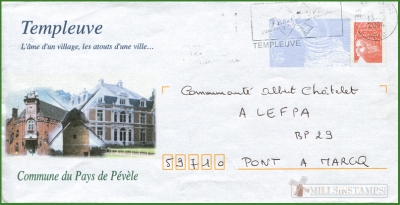 Templeuve
L'âme d'un village, les atouts d'une ville...
TEMPLEUVE
Communauté Albert Châtelet
A LEFPA
BP 29
59710 PONT A MARCQ
Commune du Pays de Pévèle
MILLS in STAMPS